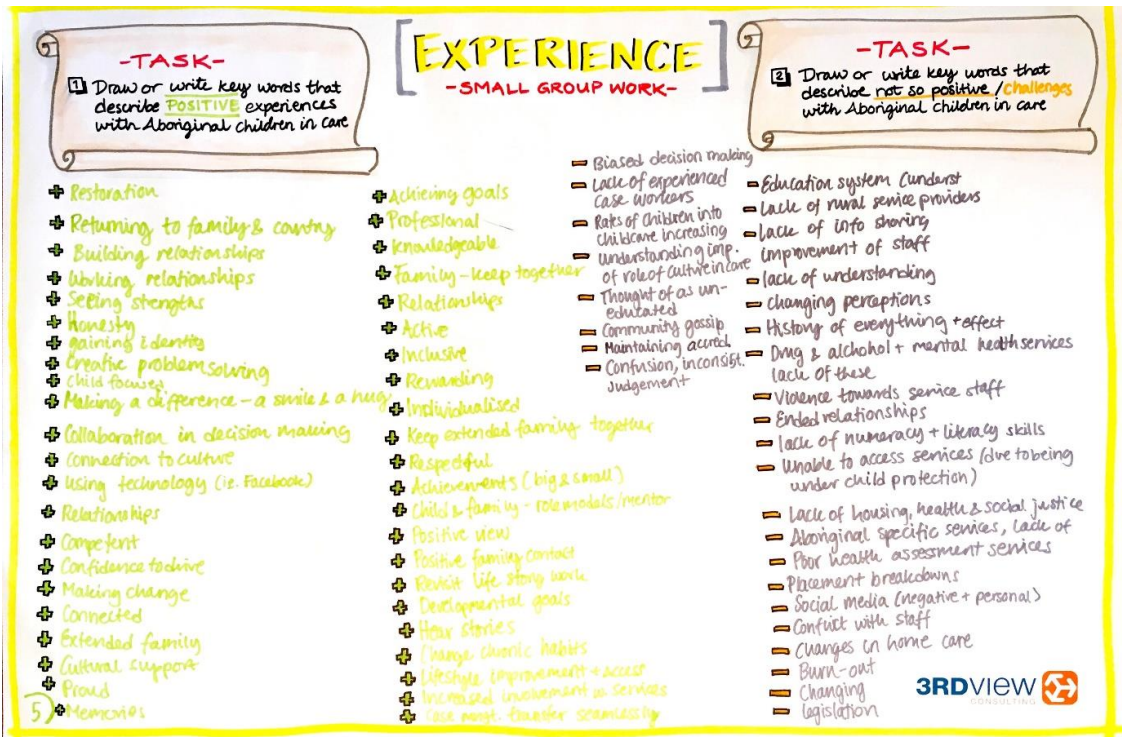 EXPERIENCE
-SMALL GROUP WORK-
-TASK-
1 Draw or write key words that
describe POSITIVE experiences
with Aboriginal children in care
-TASK-
2 Draw or write key words that
describe not so positive / challenges
with Aboriginal children in care
+ Restoration
+ Returning to family & country
+ Building relationships
+ Working relationships
+ Seeing strengths
+ Honesty
+ gaining identity
+ Creative problem solving
+ Child focused
+ Making a difference - a smile & a hug
+ Collaboration in decision making
+ Connection to culture
+ Using technology (ie. Facebook)
+ Relationships
+ Competent
+ Confidence
+ Making change
+ Connected
+ Extended family
+ Cultural support
+ Proud
+ Memories
5)
+ Achieving goals
+ Professional
+ Knowledgeable
+ Family - keep together
+ Relationships
+ Active
+ Inclusive
+ Rewarding
+ Individualised
+ Keep extended family together
+ Respectful
+ Achievements (big & small)
+ Child & family - role models/mentor
+ Positive view
+ Positive family contact
+ Revisit life story work
+ Developmental goals
+ Hear stories
+ Change chronic habits
+ Lifestyle improvement + access
+ Increased involvement w services
+ Case mngt. transfer seamlessly
- Biased decision making
- Lack of experienced
case workers
- Rates of children into
childcare increasing
- understanding imp.
of role of culture in care
- Thought of as un-
educated
- Community gossip
- Maintaining accred.
- Confusion, inconsist.
Judgement
- Education system (underst
- Lack of rural service providers
- Lack of info sharing
improvement of staff
- lack of understanding
- changing perceptions
- History of everything + effect
- Drug & alchohol + mental health services
lack of these
- Violence towards service staff
- Ended relationships
- lack of numeracy + literacy skills
- Unable to access services (due to being
under child protection)
- Lack of housing, health & social justice
- Aboriginal specific services, lack of
- Poor health assessment services
- Placement breakdowns
- Social media (negative + personal)
- Conflict with staff
- Changes in home care
- Burn-out
- Changing
- legislation
3RDVIEW
CONSULTING